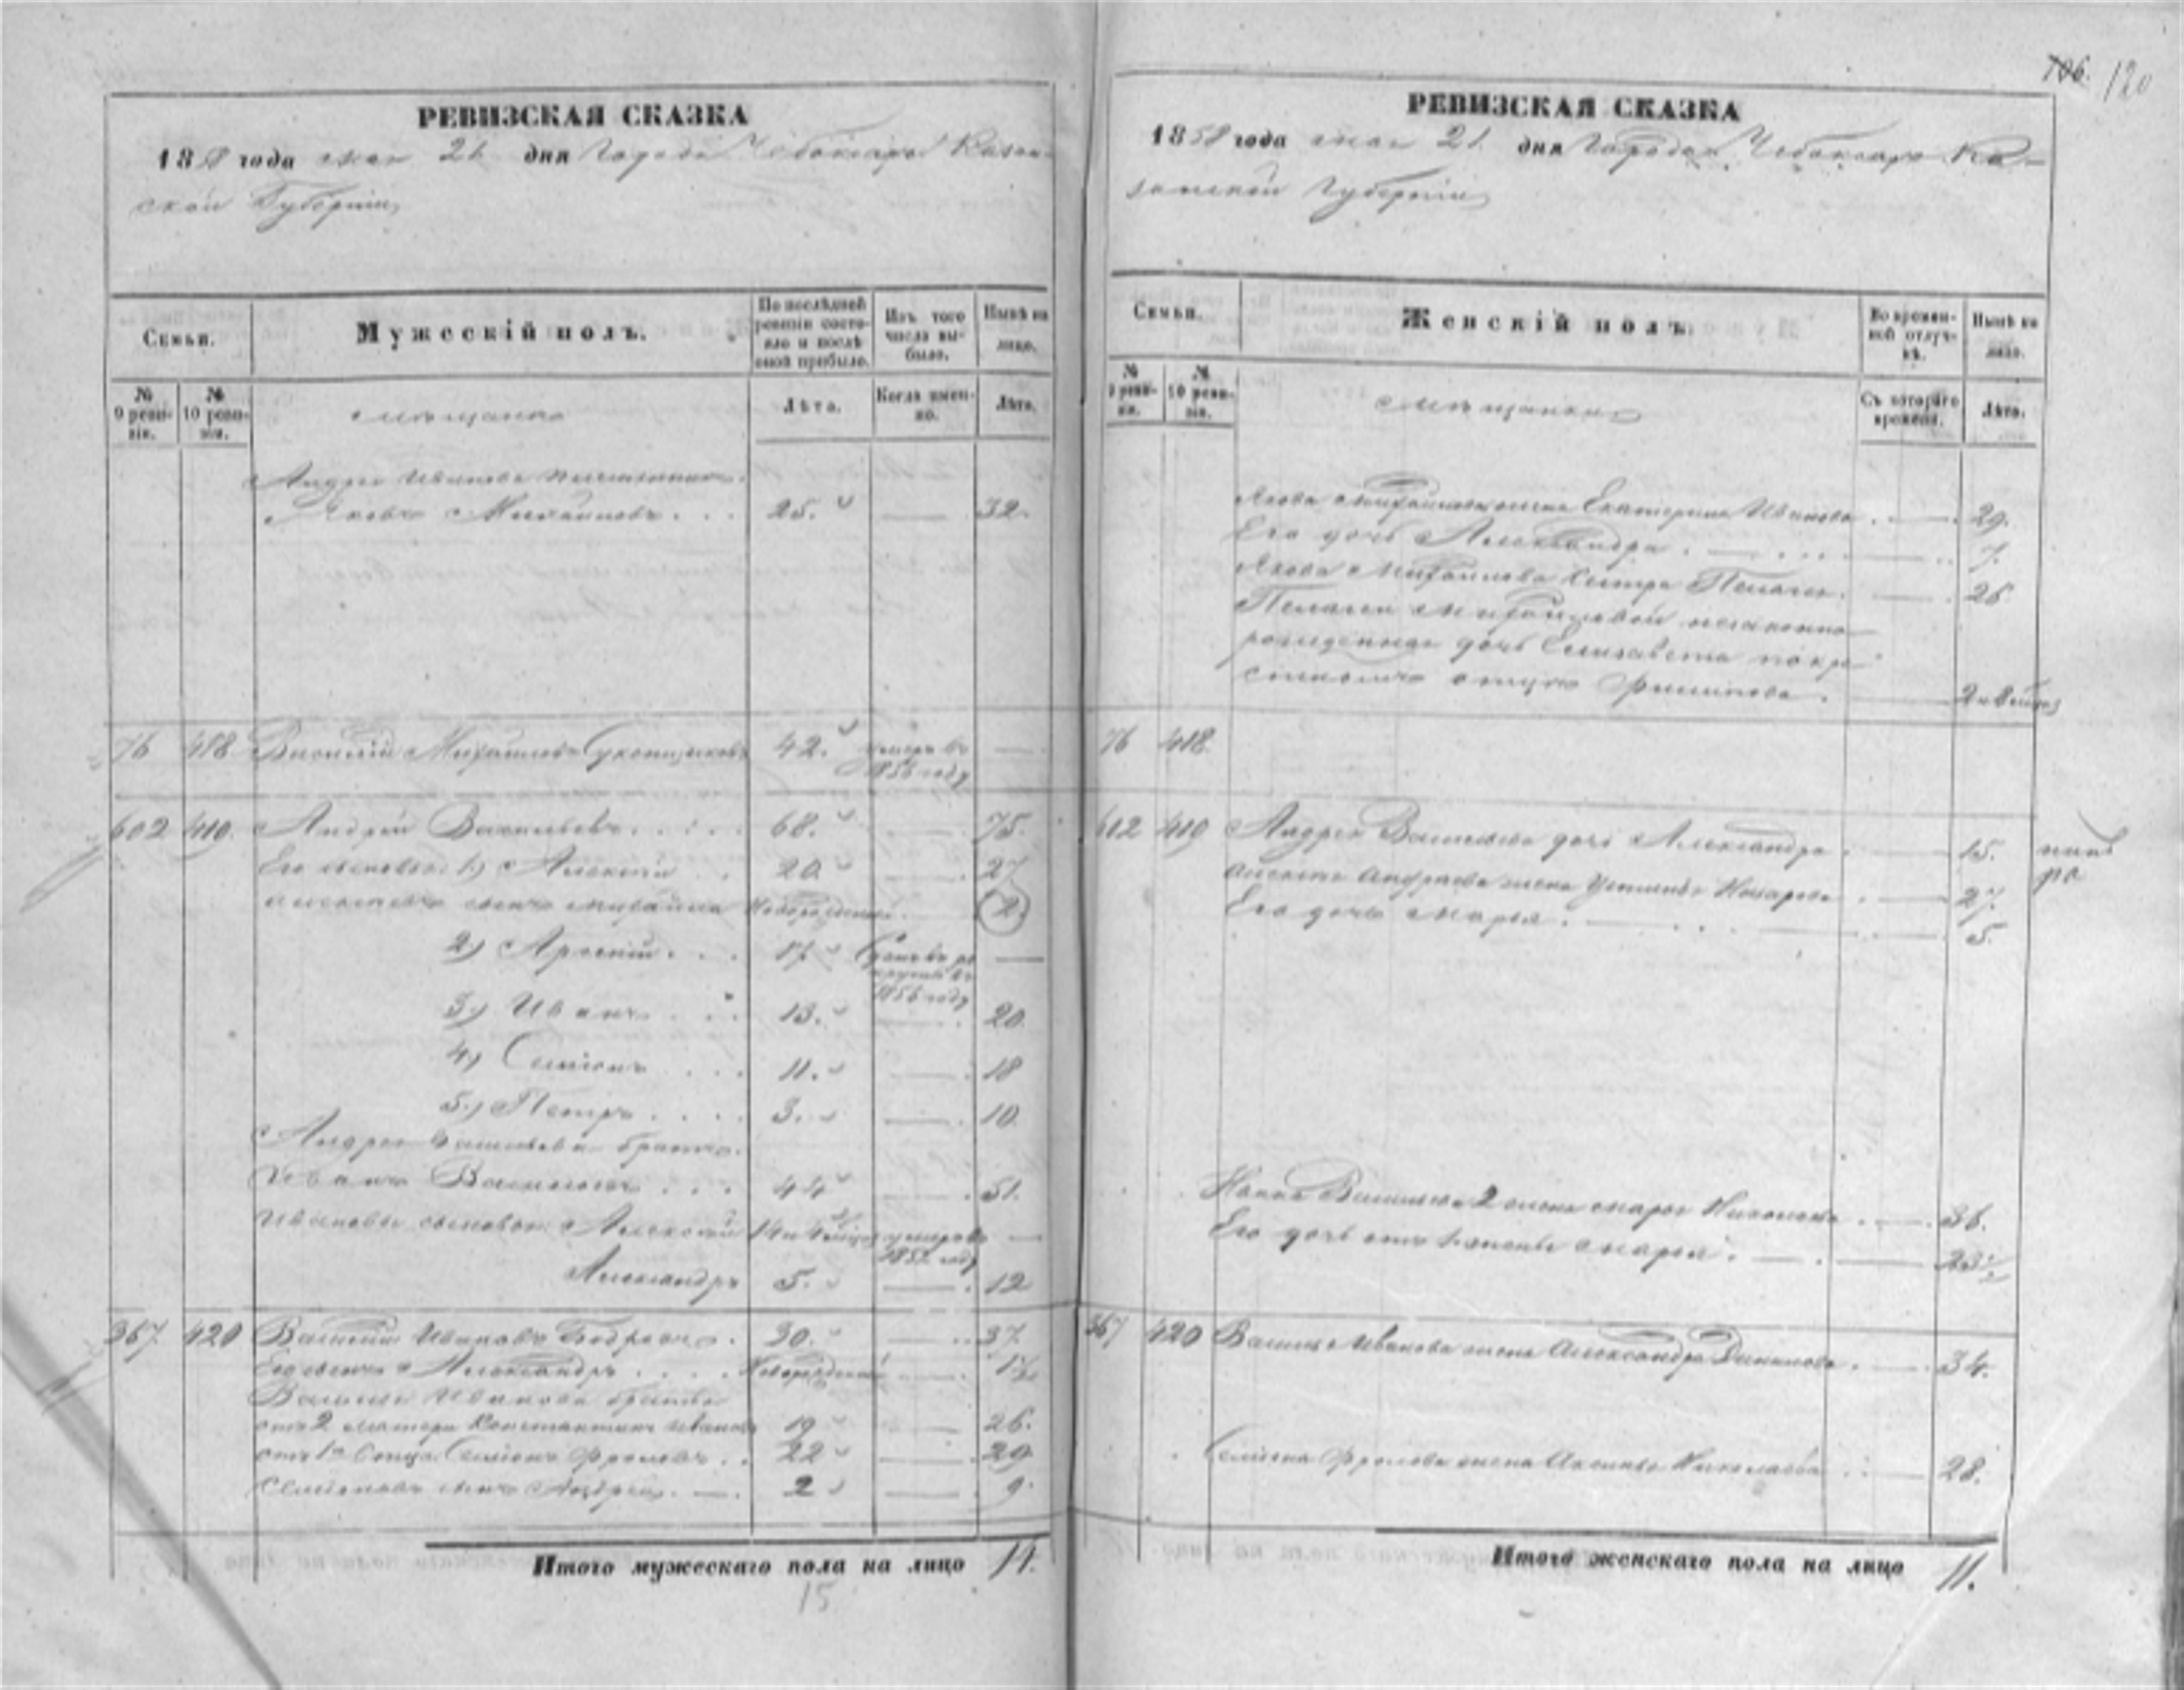 106. 120
РЕВИЗСКАЯ СКАЗКА
1858 года мая 21 дня Города Чебоксаръ Казан-
ской Губерніи
Семьи.
Мужескій полъ.
По послѣдней ревизіи состояло и послѣ оной прибыло.
Изъ того числа выбыло.
Нынѣ на лицо.
№ 9 ревизіи.
№ 10 ревизіи.
мѣщане
Лѣта.
Когда именно.
Лѣта.
Андрея Иванова племянникъ
Яковъ Михайловъ . . . 25. — 32.
76 418 Василій Михайловъ 42. умеръ въ 1856 году —
602 419. Андрей Васильевъ . . . . 68. — 75.
Его сыновья 1) Алексей . . 20 — 27
Алексея сынъ Михайла Новорожденный. 2
2) Арсений . . . 17 Сданъ въ рекруты въ 1856 году —
3) Иванъ . . . 13. — 20.
4) Семионъ . . . 11. — 18
5.) Петръ . . . . 3. — 10.
Андрея Васильева братъ
Иванъ Васильевъ . . . 44 — 51.
Ивановы сыновья: Алексей 14 умеръ —
Александръ 5. — 12
367. 420 Василий Ивановъ . 30. — 37.
Его сынъ Александръ . . . . Новорожденный —
Василья Иванова братья
отъ 2 матери Константинъ Ивановъ 19 — 26.
Семионъ Фроловъ . . 22 — 29
Семионовъ сынъ Андрей. — 2 — 9.
Итого мужескаго пола на лицо 14.
15
РЕВИЗСКАЯ СКАЗКА
1858 года мая 21. дня Города Чебоксаръ Ка-
занской Губерніи
Семьи.
Женскій полъ.
Во временной отлучкѣ.
Нынѣ на лицо.
№ 9 ревизіи.
№ 10 ревизіи.
мѣщанки
Съ котораго времени.
Лѣта.
Якова Михайлова жена Екатерина Иванова . — 29.
Его дочь Александра . — . . . — 7.
Якова Михайлова сестра Пелагея . — 26
Пелагеи Михайловой незаконно-
рожденная дочь Елизавета по кре-
стномъ отцѣ Филипова . —
76 418.
612 419 Андрея Васильева дочь Александра . — 15.
Алексея Андреева жена Устинья Назарова . — 27.
Его дочь Марья . — 5.
Ивана Васильева 2 жена Марья . — 36.
Его дочь отъ 1 жены Марья . —
367 420 Василья Иванова жена Александра . — 34.
Семиона Фролова жена Аксинья Николаева . — 28.
Итого женскаго пола на лицо 11.